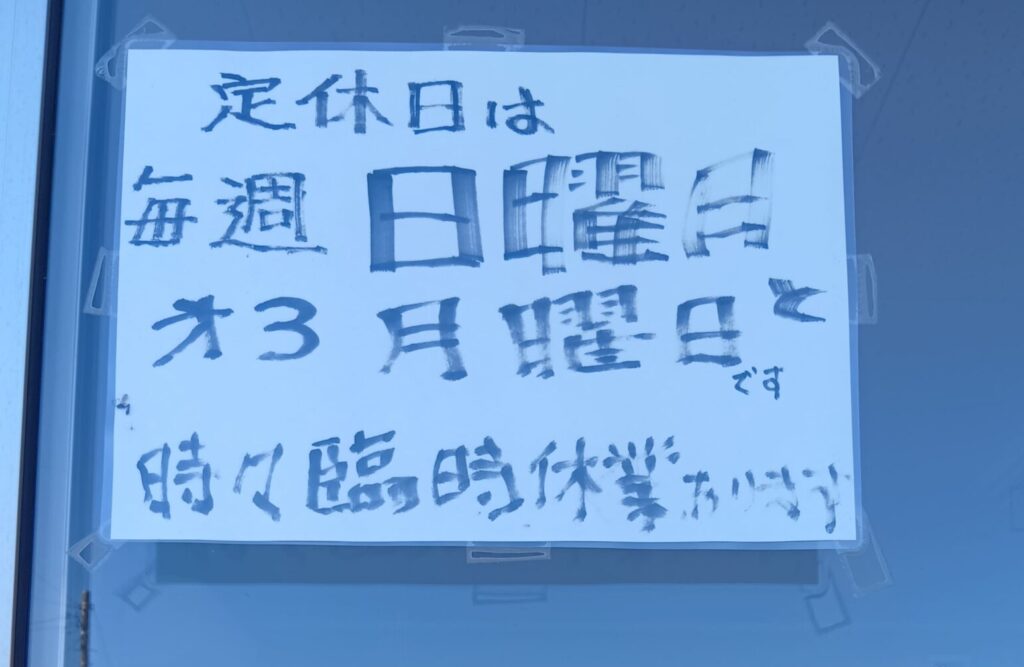 定休日は
毎週 日曜日と
才3 月曜日
です
時々臨時休業あります